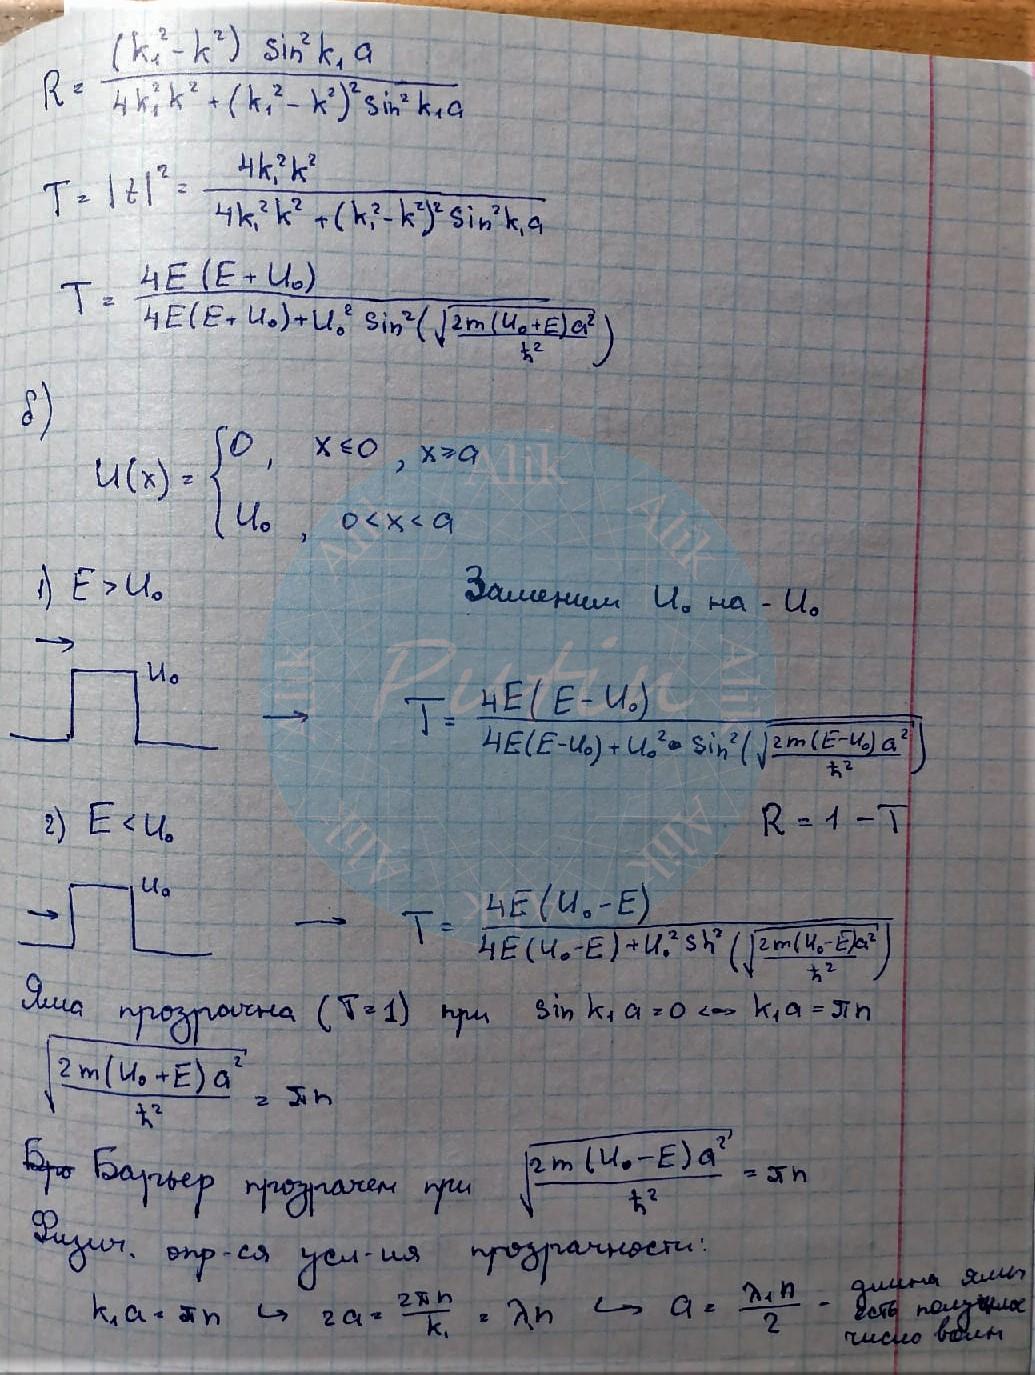 R = (k₁² - k²) sin² k₁a / (4k₁²k² + (k₁² - k²)² sin² k₁a)
T = |t|² = 4k₁²k² / (4k₁²k² + (k₁² - k²)² sin² k₁a)
T = 4E(E + U₀) / (4E(E + U₀) + U₀² sin²(√(2m(U₀+E)a²/ħ²)))
б)
U(x) = { 0, x ≤ 0, x ≥ a
U₀, 0 < x < a
1) E > U₀ Заменим U₀ на - U₀
U₀ → T = 4E(E - U₀) / (4E(E-U₀) + U₀² · sin²(√(2m(E-U₀)a²/ħ²)))
2) E < U₀ R = 1 - T
U₀ → T = 4E(U₀ - E) / (4E(U₀-E) + U₀² sh²(√(2m(U₀-E)a²/ħ²)))
Яма прозрачна (T=1) при sin k₁a = 0 <=> k₁a = πn
√(2m(U₀+E)a²/ħ²) = πn
Барьер прозрачен при √(2m(U₀-E)a²/ħ²) = πn
Физич. опр-ся усл-ия прозрачности:
k₁a = πn ↪ 2a = 2πn/k₁ = λn ↪ a = λ₁n/2 - длина ямы
есть полуцелое
число волн
Alik
Alik
Alik
Alik
Alik
Alik
Alik
Alik
Putin